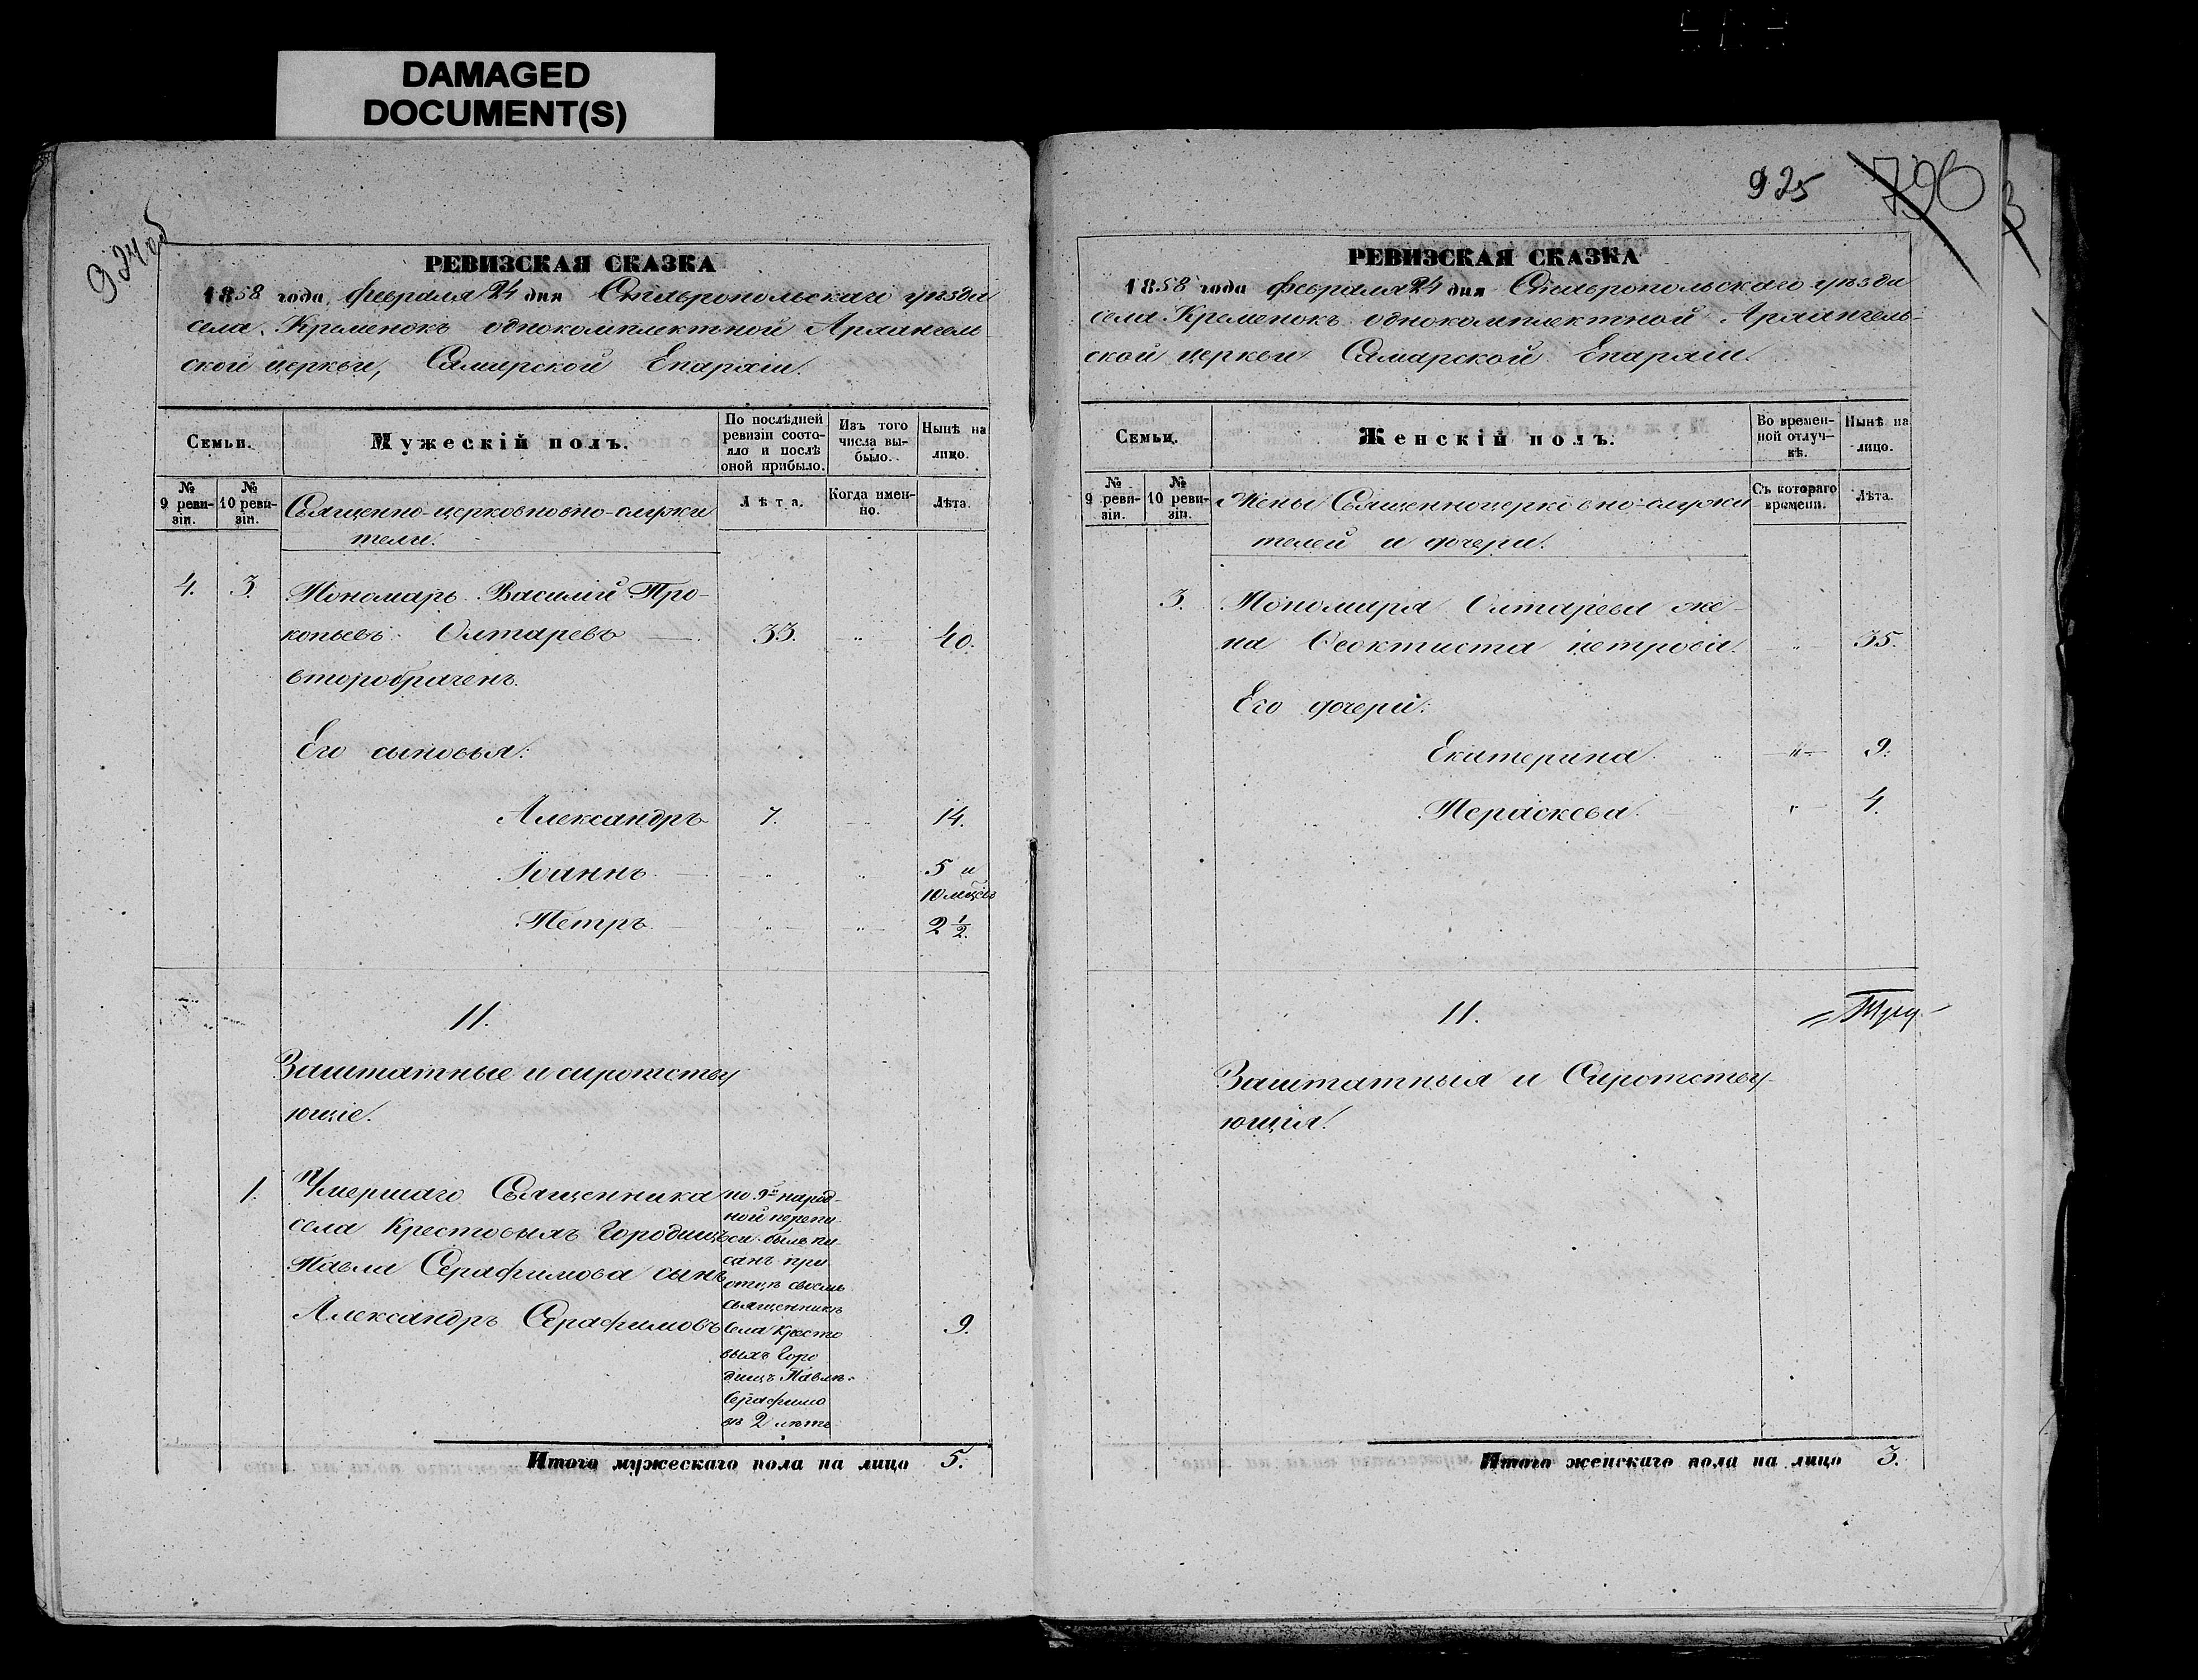 DAMAGED
DOCUMENT(S)
924об
РЕВИЗСКАЯ СКАЗКА
1858 года, февраля 24 дня Ставропольскаго уѣзда
села Кременокъ однокомплектной Архангель
ской церкви, Самарской Епархіи.
Семьи.
Мужескій полъ.
По послѣдней
ревизіи состо-
яло и послѣ
оной прибыло.
Изъ того
числа вы-
было.
Нынѣ на
лицо.
№
9 реви-
зіи.
№
10 реви-
зіи.
Священно-церковно-служи
тели.
Лѣта.
Когда имен-
но.
Лѣта.
4. 3. Пономарь Василій Про-
копьевъ Олтаревъ 33. " 40.
второбраченъ.
Его сыновья:
Александръ 7. 14.
Іоаннъ " " 5 и
10 мѣсяц
Петръ " " 2 1/2.
11.
Заштатные и сиротству
ющіе.
1. Умершаго Священника
села Крестовыхъ Городищъ
Павла Серафимова сынъ
Александръ Серафимовъ 9.
по 9й народ-
ной перепи
си былъ пи-
санъ при
отцѣ своемъ
священникѣ
села Кресто
выхъ Горо
дищъ Павлѣ
Серафимо
вѣ 2 лѣтъ
Итого мужескаго пола на лицо 5.
925 796
3
РЕВИЗСКАЯ СКАЗКА
1858 года февраля 24 дня Ставропольскаго уѣзда
села Кременокъ однокомплектной Архангель-
ской церкви Самарской Епархіи.
Семьи.
Женскій полъ.
Во времен-
ной отлуч-
кѣ.
Нынѣ на
лицо.
№
9 реви-
зіи.
№
10 реви-
зіи.
Жены Священноцерковно-служи
телей и дочери.
Съ котораго
времени.
Лѣта.
3. Пономаря Олтарева же-
на Феоктиста Петрова. " 35.
Его дочери:
Екатерина. " 9.
Параскева. " 4.
11.
Заштатныя и Сиротству-
ющія.
Итого женскаго пола на лицо 3.